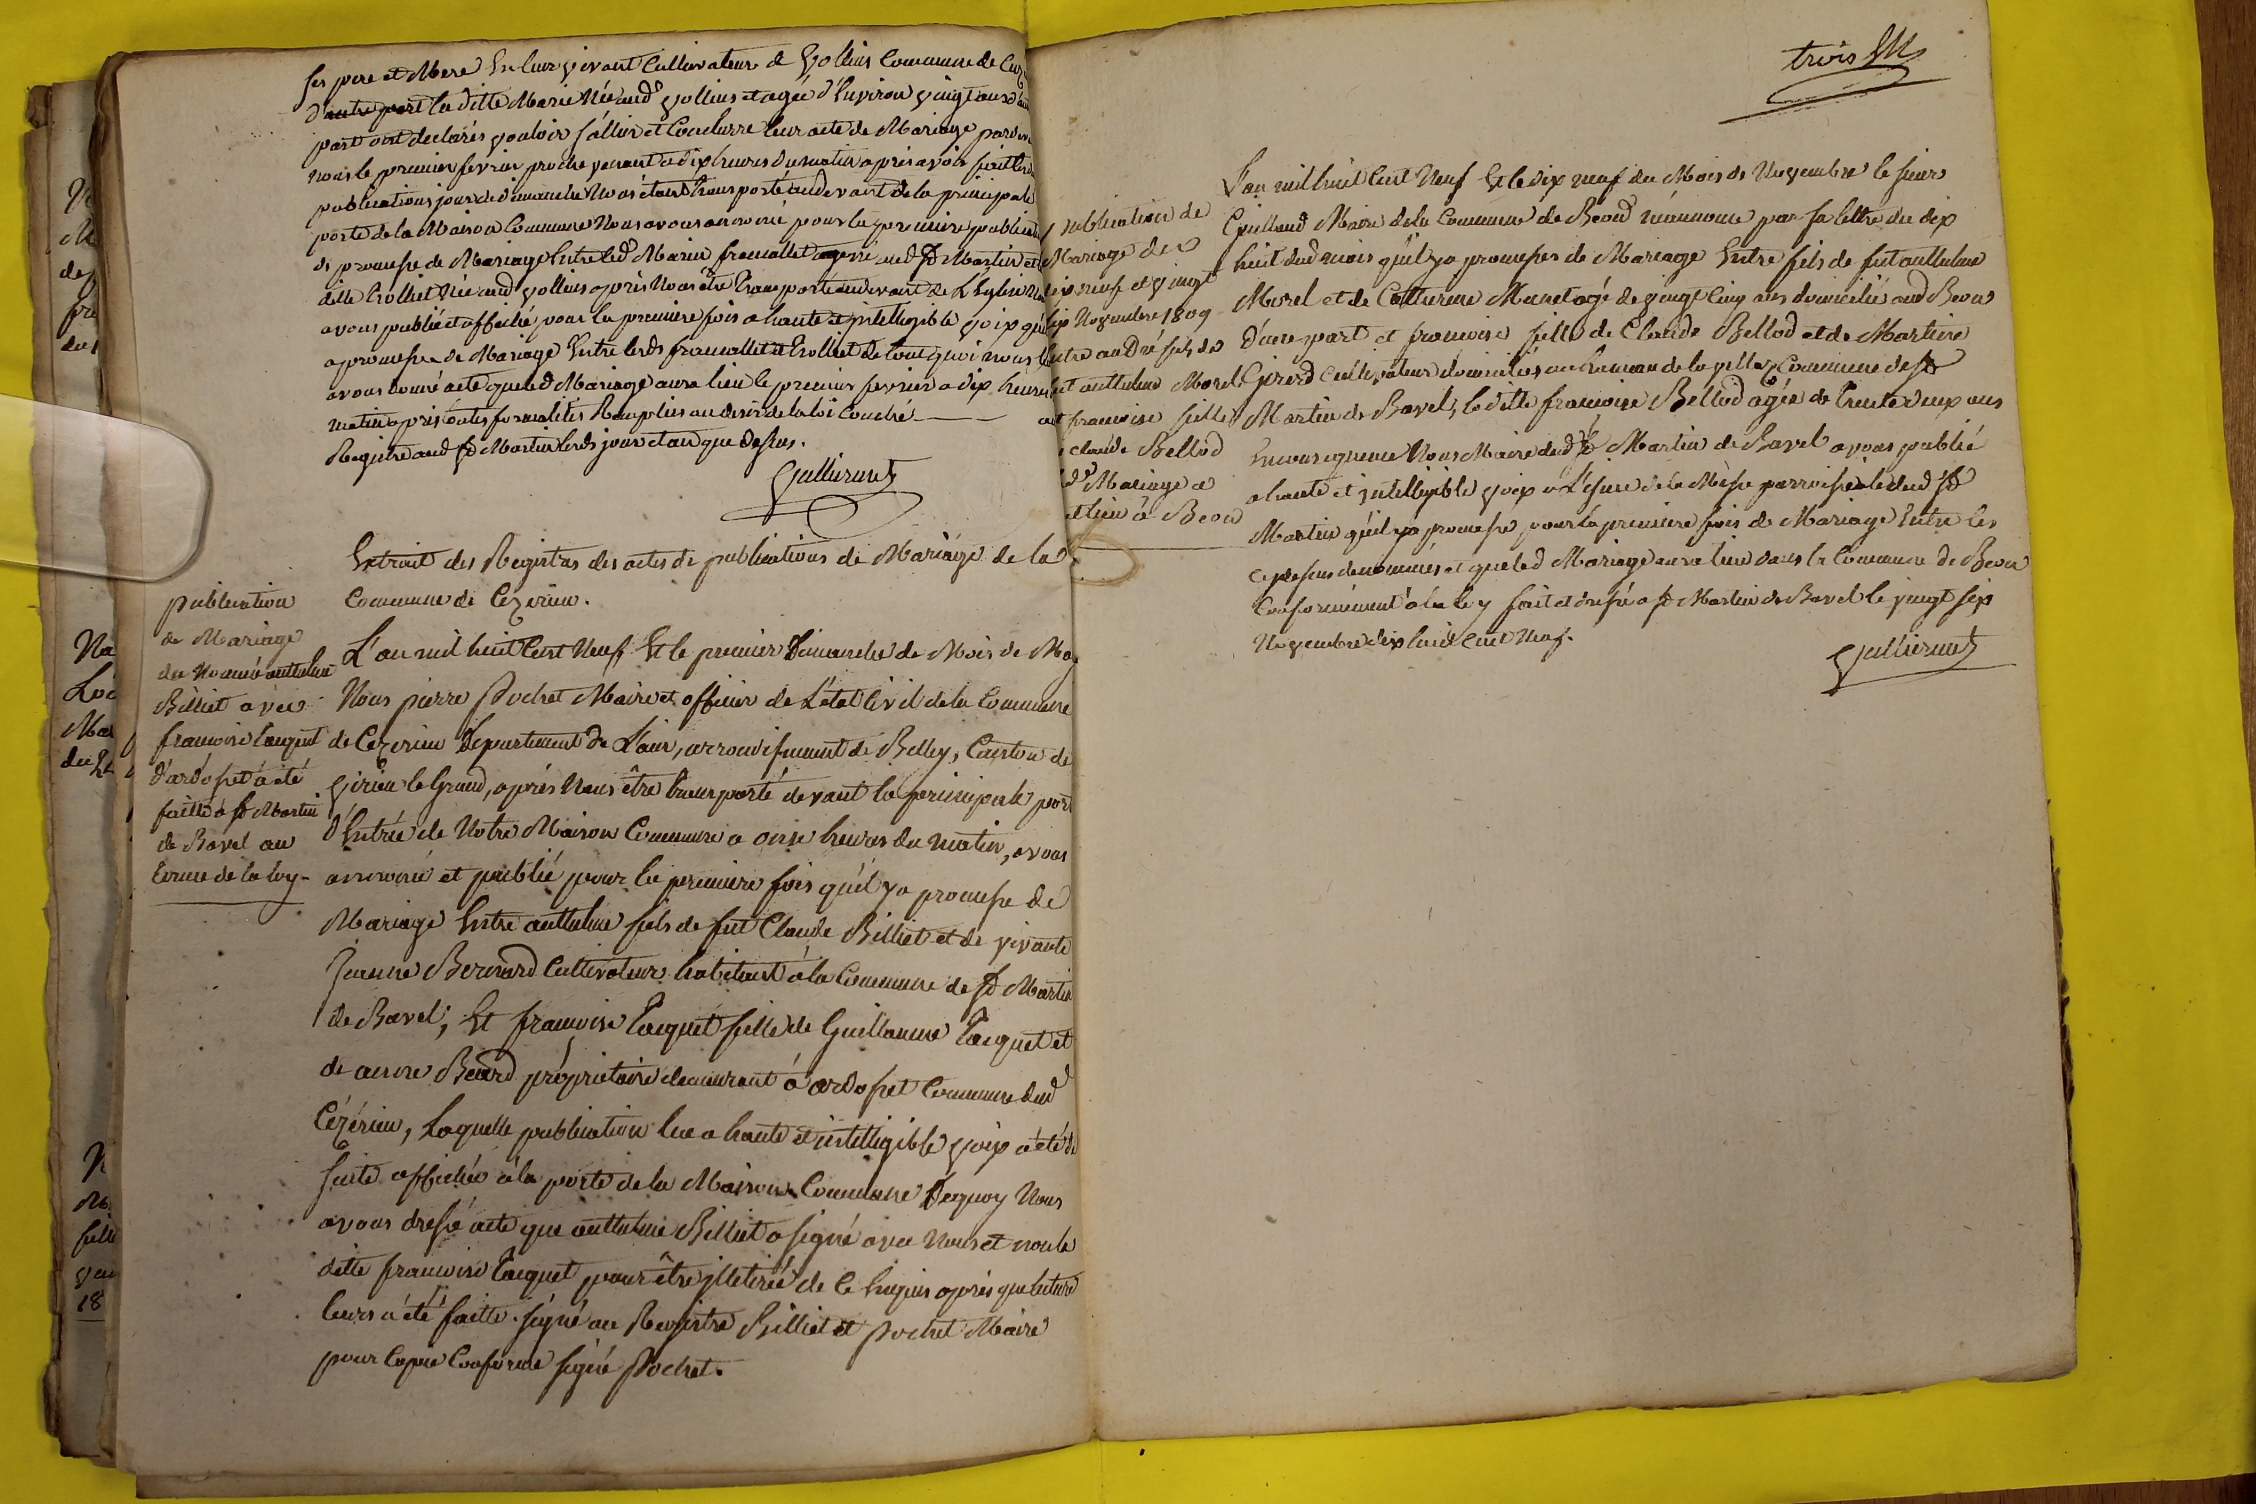 ses pere et Mere En leur vivant Cultivateur d Vollins Commune de
d'autre part la ditte Marie Née aud Vollins et agée d'Environ Vingt ans d'autre
part ont declarés vouloir s'allier et Conclurre leur acte de Mariage par devant
nous le premier fevrier proche venant a dix heures du matin après avoir fait les
publications jour de dimanche Nous étant transporté audevant de la principale
porte de la Maison Commune Nous avons annoncé pour la premiere publication
de promesse de Mariage Entre led Marin francallet aud St Martin et la
ditte Trolliet Née aud Vollins après Nous être transporté audevant de L'Eglise
avons publié et affiché pour la premiere fois a haute et jntelligible voix qu'il
a promesse de Mariage Entre lesds francallet et Trolliet de tout quoi nous
avons donné acte que led Mariage aura lieu le premier fevrier a dix heures
matin après toutes formalités Remplies au desir de la loi Couché
Registre aud St Martin lesds jour et an que dessus.
Extrait des Registres des actes de publications de Mariage de la
Commune de Cezerieu.
publication
de Mariage
du Nommé anthelme
Billiet avec
francoise tacquet
d'ardosset a été
faitte a St Martin
de Bavel au
terme de la loy-
L'an mil huit Cent Neuf Et le premier Dimanche de Mois de
Nous pierre Pochet Maire et officier de L'état Civil de la Commune
de Cezerieu Département de L'ain, arrondissement de Belley, Canton de
Virieu le Grand, après Nous être transporté devant la principale porte
d'Entrée de Notre Maison Commune a onze heures du matin, avons
annoncé et publié pour la premiere fois qu'il y a promesse de
Mariage Entre anthelme fils de fut Claude Billiet et de vivante
Jeanne Bernard Cultivateur habitant à la Commune de St Martin
de Bavel; Et françoise Tacquet fille de Guillaume Tacquet et
de anne Béard propriétaire demeurant à ardosset Commune dud
Cézérieu, Laquelle publication lue a haute et jntelligible voix a été de
suite affichée à la porte de la Maison Commune Dequoy Nous
avons dressé acte que anthelme Billiet a signé avec Nous et non la
ditte francoise Tacquet pour être jlletirée de Ce Enquis après que lecture
leurs a été faitte. signé au Registre Billiet et Pochet Maire
pour Copie Conforme signé Pochet.
trois
publication de
Mariage des
dix neuf et vingt
six Novembre 1809
Entre andré fils de
fut anthelme Morel
et francoise fille
claude Bellod
led Mariage a
et lieu à Beon
L'an mil huit Cent Neuf Et le dix neuf du Mois de Novembre le sieur
Guilland Maire de la Commune de Beon m'annonce par sa lettre du dix
huit dud mois qu'il y a promesses de Mariage Entre fils de fut anthelme
Morel et de Catherine Munet agé de vingt Cinq ans domicilié aud Beon
D'une part et francoise fille de Claude Bellod et de Martine
Girerd Cultivateur domiciliés au hameau de la ville, Commune de St
Martin de Bavel; la ditte francoise Bellod agée de trente deux ans
En consequence Nous Maire dud St Martin de Bavel avons publié
a haute et jntelligible voix a L'issue de la Messe parroissiale dud St
Martin qu'il y a promesse pour la premiere fois de Mariage Entre les
Cy dessus denommés et que led Mariage aura lieu dans la Commune de Beon
Conformément à la ley fait et dressé a St Martin de Bavel le vingt six
Novembre dix huit Cent Neuf.